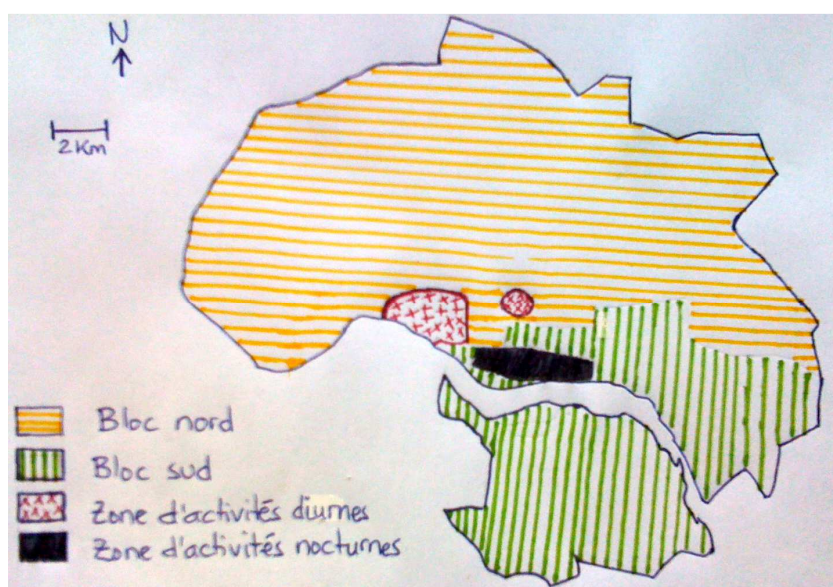 N
2 Km
Bloc nord
Bloc sud
Zone d'activités diurnes
Zone d'activités nocturnes